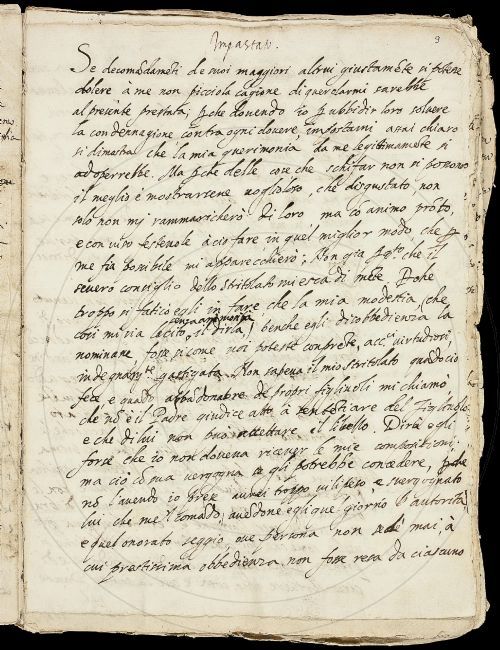 Impastato.
3
Se de comādamēti de suoi maggiori altrui giustamēte si potesse
dolere à me non picciola cagione di querelarmi sarebbe
al presente prestata; pche dovendo io p ubbidir loro solvere
la condennagione contra ogni dovere, impostami assai chiaro
si dimostra che la mia querimonia da me legitimamente si
adoperrebbe. Ma pche delle cose che schifar non si possono
il meglio è mostrarsene voglioloso, che disgustato, non
solo non mi rammaricherò di loro ma cō animo prōto,
e con viso festevole a ciò fare in quel miglior modo che p
me fia possibile mi apparecchierò; Non già pq.to che il
severo consiglio dello Stritolato mi esca di mēte. Poche
troppo si faticò egli in fare, che la mia modestia (che
senza arroganza
così mi sia lecito il dirla) benche egli disobbedienza la
nominane, fosse sicome voi poteste comprēdere, acc.i virtudiosi,
indegnam.te gastigata. Non sapeva il mio Stritolato quādo ciò
fece e quādo abbādonatore de propri figliuoli mi chiamò
che nō è il Padre giudice atto à sentētiare del figliuolo
e che di lui non può accettare il libello. Dirà egli
forse che io non doveva ricever le mie compositioni.
ma ciò cō sua vergogna se gli potrebbe concedere, pche
nō l'avendo io prese avrei troppo vilipeso, e svergognato
lui che me l tornado; aveddone egli que giorno l'autorità,
e quel onorato seggio, ove persona non sedè mai, à
cui prestissima obbedienza non fosse resa da ciascuno